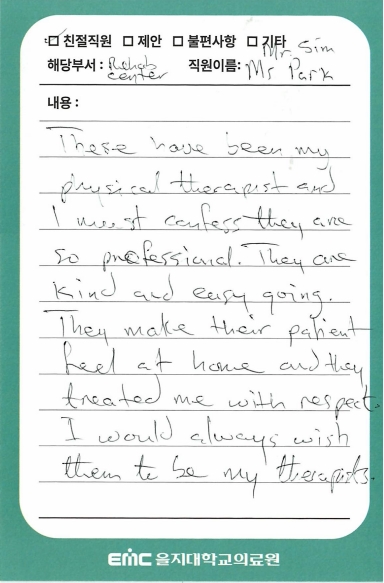 ☐ 친절직원 ☐ 제안 ☐ 불편사항 ☐ 기타
Mr. Sim
해당부서 : Rehab center 직원이름: Ms Park
내용 :
These have been my
physical therapist and
I must confess they are
so professional. They are
kind and easy going.
They make their patient
feel at home and they
treated me with respect.
I would always wish
them to be my therapists.
EMC 을지대학교의료원